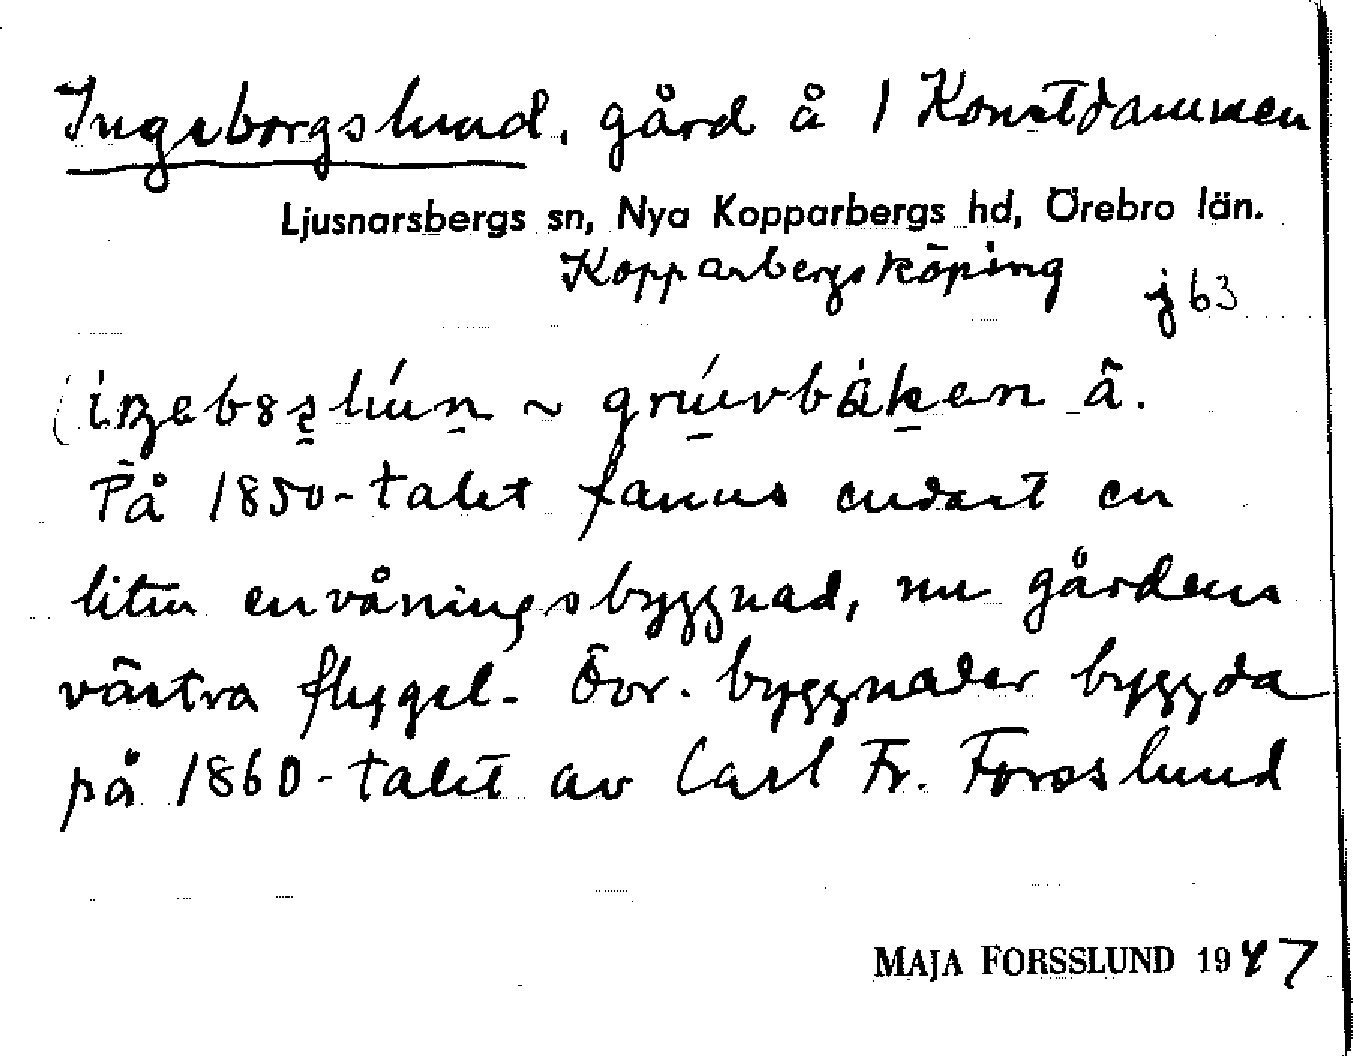 Ingeborgslund, gård å 1 Konstdammen
Ljusnarsbergs sn, Nya Kopparbergs hd, Örebro län.
Kopparbergs köping
j 63
~ å.
På 1850-talet fanns endast en
liten envåningsbyggnad, nu gårdens
västra flygel. Övr. byggnader byggda
på 1860-talet av Carl Fr. Forsslund
MAJA FORSSLUND 1947